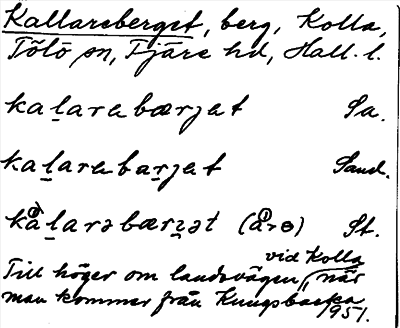 Kallareberget, berg, Kolla,
Tölö sn, Fjäre hd, Hall. l.
kaḻarebærjet Sa.
kaḻarebaṟjet Sand.
kåḻarəbæṟjət (åre) St.
vid Kolla
Till höger om landsvägen, när
man kommer från Kungsbacka
1951.